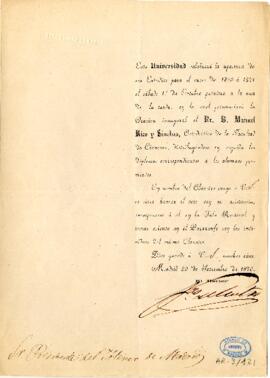 Esta Universidad celebrará la apertura de
sus Estudios para el curso de 1870 á 1871
el sábado 1º de Octubre próximo á la una de
la tarde, en la cual pronunciará la
Oracion inaugural el Dr. D. Manuel
Rico y Sinobas, Catedrático de la Facultad
de Ciencias, distribuyéndose en seguida los
diplomas correspondientes á los alumnos
premiados.
En nombre del Claustro ruego á V.S.
se sirva honrar el acto con su asistencia,
incorporarse á él en la Sala Rectoral y
tomar asiento en el Paraninfo con los
individuos del mismo Claustro.
Dios guarde á V.S. muchos años.
Madrid 20 de Setiembre de 1870.
Sr. Presidente del Ateneo de Madrid